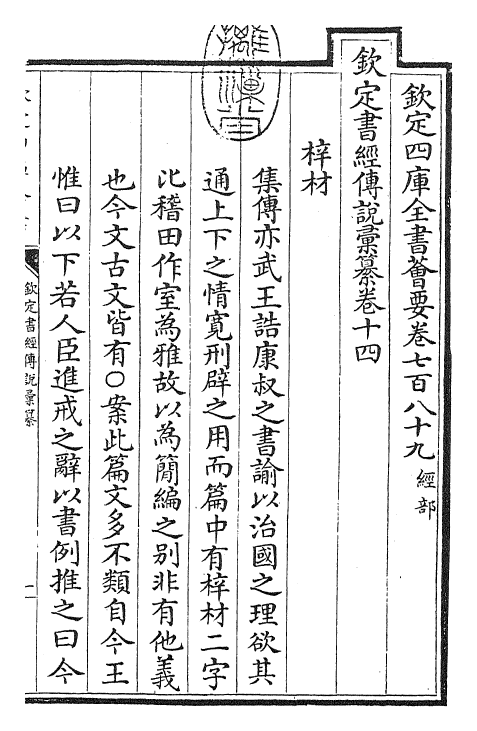 欽定四庫全書薈要卷七百八十九 經部
欽定書經傳說彙纂卷十四
梓材
集傳亦武王誥康叔之書諭以治國之理欲其
通上下之情寛刑辟之用而篇中有梓材二字
比稽田作室為雅故以為簡編之别非有他義
也今文古文皆有○案此篇文多不類自今王
惟曰以下若人臣進戒之辭以書例推之曰今
欽定書經傳說彙纂
一